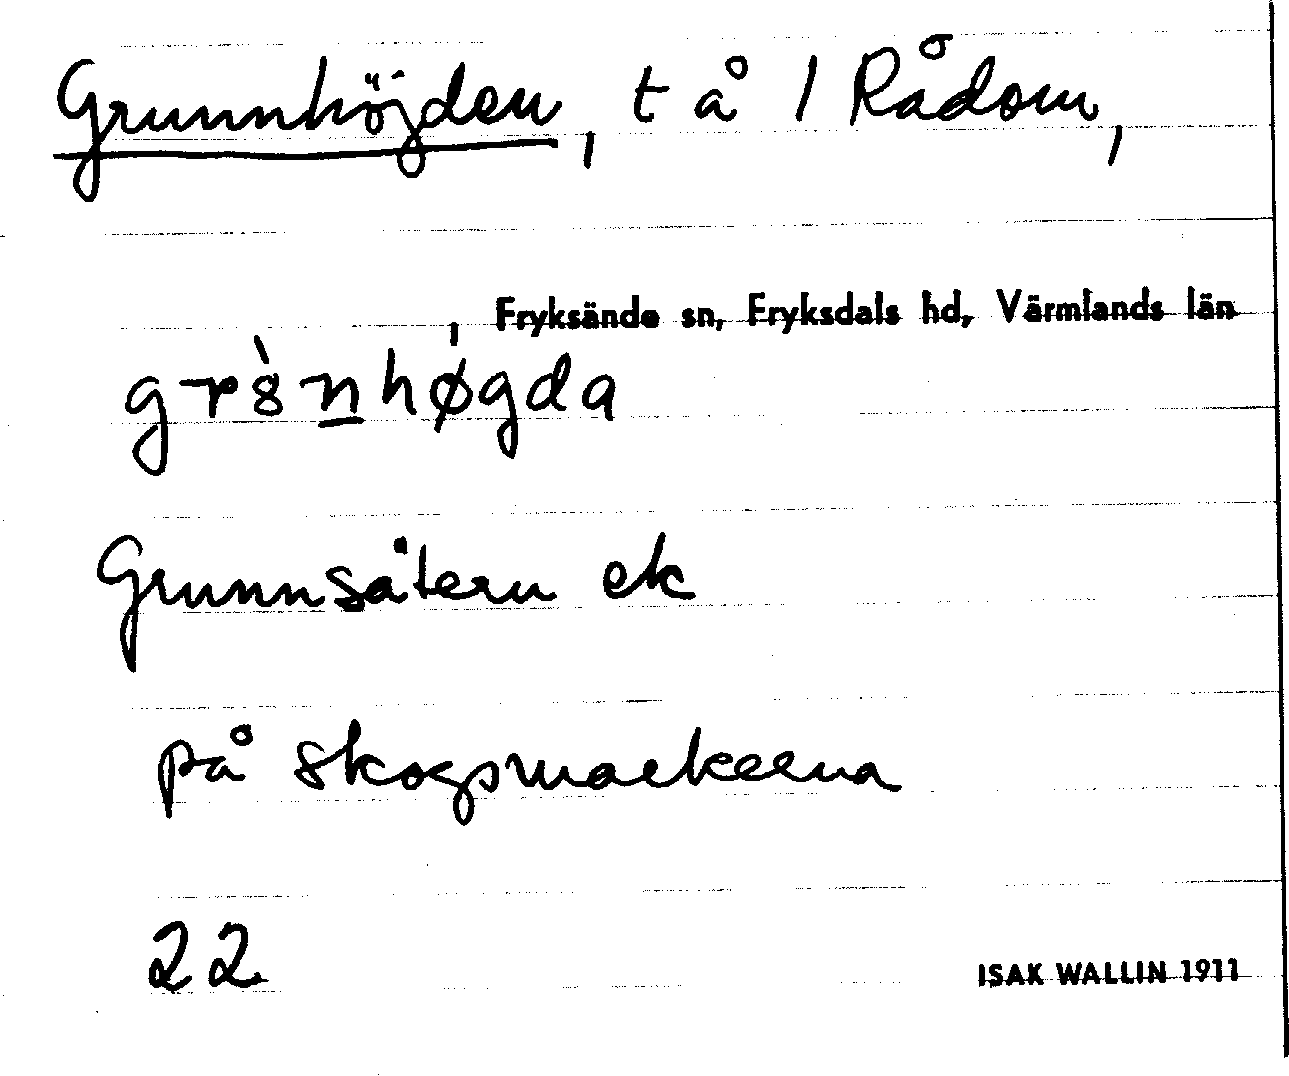 Grunnhöjden, t å 1 Rådom,
, Fryksände sn, Fryksdals hd, Värmlands län
Grunnsätern ek
på skogsmarkerna
22
ISAK WALLIN 1911